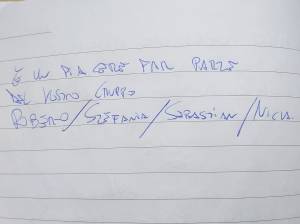 È UN PIACERE FAR PARTE
DEL VOSTRO GRUPPO
ROBERTO/STEFANIA/SEBASTIAN/NICLA